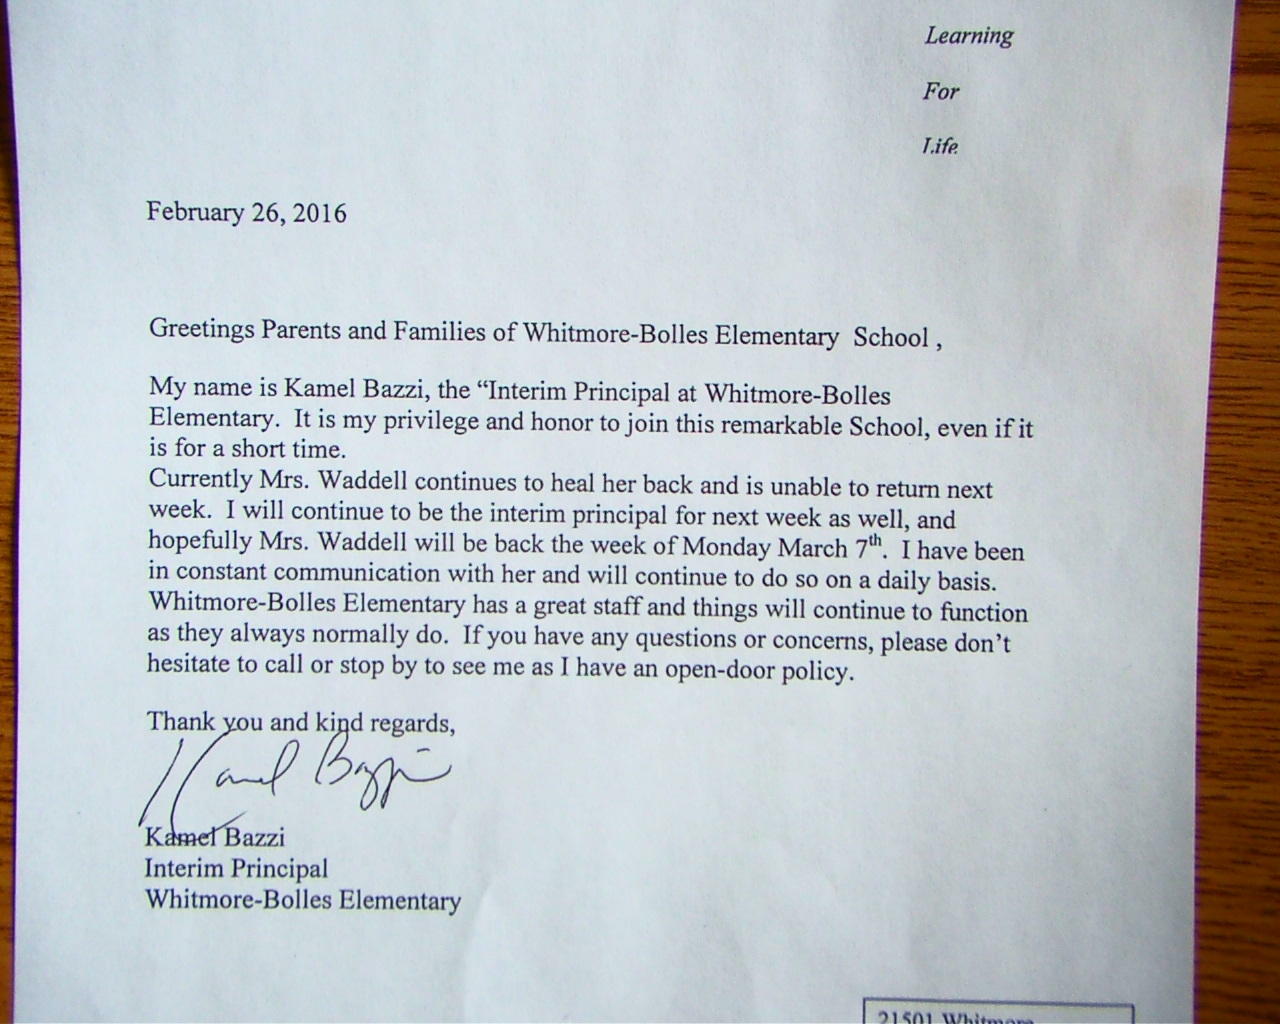 Learning
For
Life
February 26, 2016
Greetings Parents and Families of Whitmore-Bolles Elementary School ,
My name is Kamel Bazzi, the “Interim Principal at Whitmore-Bolles
Elementary. It is my privilege and honor to join this remarkable School, even if it
is for a short time.
Currently Mrs. Waddell continues to heal her back and is unable to return next
week. I will continue to be the interim principal for next week as well, and
hopefully Mrs. Waddell will be back the week of Monday March 7th. I have been
in constant communication with her and will continue to do so on a daily basis.
Whitmore-Bolles Elementary has a great staff and things will continue to function
as they always normally do. If you have any questions or concerns, please don’t
hesitate to call or stop by to see me as I have an open-door policy.
Thank you and kind regards,
Kamel Bazzi
Kamel Bazzi
Interim Principal
Whitmore-Bolles Elementary
21501 Whitmore